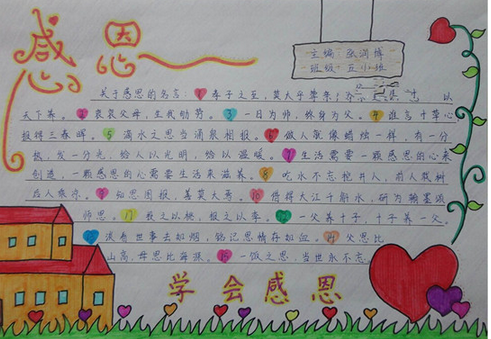 感恩
主编 张润博
班级 五小班
关于感恩的名言：1 孝子之至，莫大乎尊亲； 以
天下养。2 哀哀父母，生我劬劳。3 一日为师，终身为父。4 谁言寸草心
报得三春晖。5 滴水之恩当涌泉相报。6 做人就像蜡烛一样，有一分
热，发一分光，给人以光明，给以温暖。7 生活需要一颗感恩的心来
创造，一颗感恩的心需要生活来滋养。8 吃水不忘挖井人，前人栽树
后人乘凉。9 知恩图报，善莫大焉。10 借得大江千斛水，研为翰墨颂
师恩。11 投之以桃，报之以李。12 一父养十子，十子养一父。
13 没有世事去如烟，铭记恩情存如血。14 父恩比
山高，母恩比海深。15 一饭之恩，当世永不忘。
学会感恩